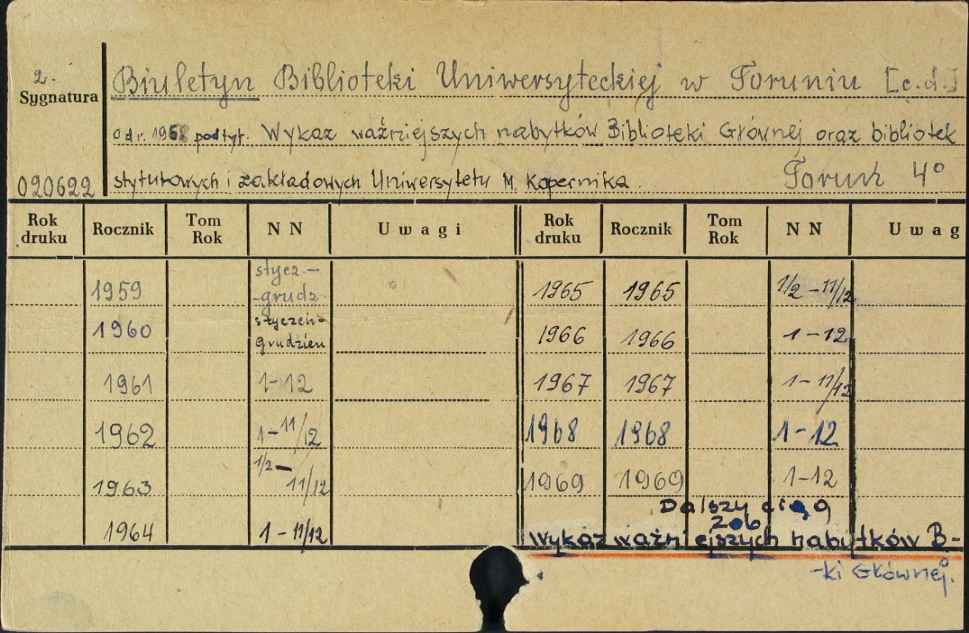 2.
Sygnatura
Biuletyn Biblioteki Uniwersyteckiej w Toruniu [c.d.]
od r. 1968 podtyt. Wykaz ważniejszych nabytków Biblioteki Głównej oraz bibliotek
020622 stytutowych i zakładowych Uniwersytetu M. Kopernika. Toruń 4°
Rok druku Rocznik Tom Rok NN Uwagi Rok druku Rocznik Tom Rok NN Uwag
1959 stycz.- -grudz. 1965 1965 1/2-11/12
1960 styczeń- grudzień 1966 1966 1-12
1961 1-12 1967 1967 1-11/12
1962 1-11/12 1968 1968 1-12
1963 1/2-11/12 1969 1969 1-12
1964 1-11/12
Dalszy ciąg
Zob.
Wykaz ważniejszych nabytków B-
-ki Głównej.